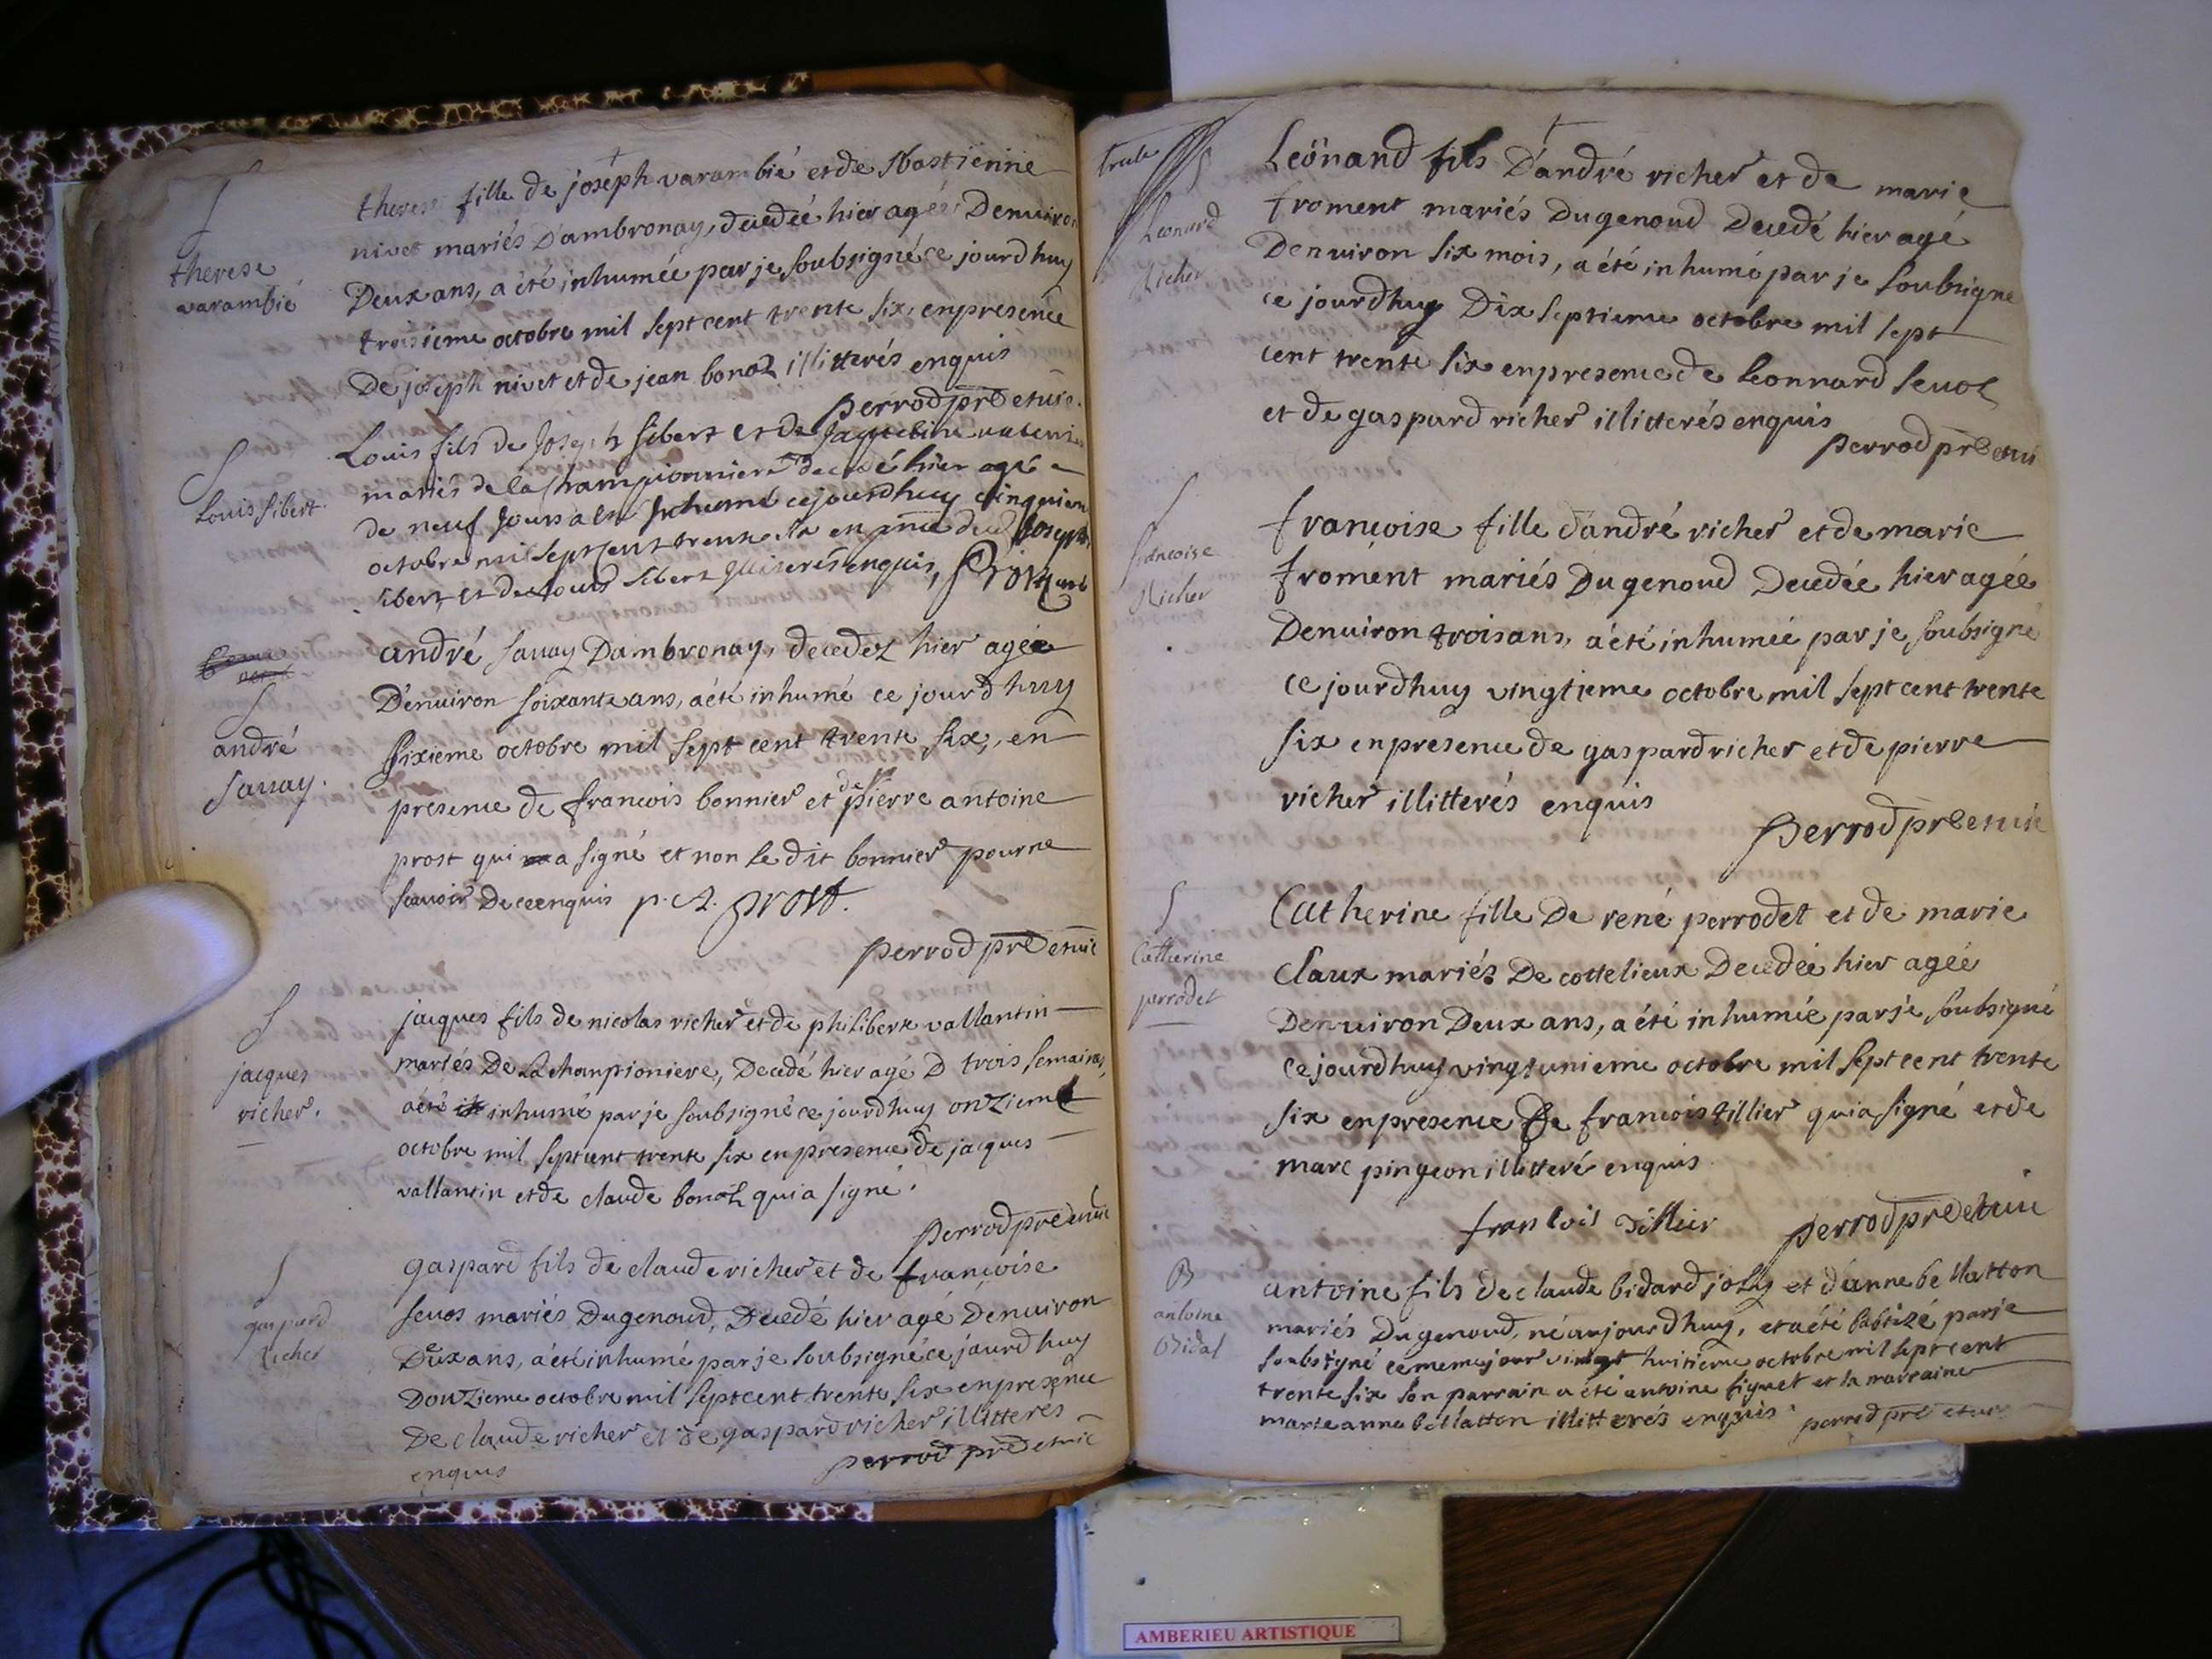 S
therese
varambié
therese fille de joseph varambié et de Sbastienne
nivet mariés d'ambronay, decedée hier agée Denuiron
Deux ans, a été inhumée par je soubsigné ce jourdhuy
troisieme octobre mil sept cent trente six, en presence
De joseph nivet et de jean bonoz illitterés enquis
perrod pre et uic.
S
Louis sibert.
Louis fils de Joseph sibert et de Jaqueline
mariés de la championniere decedé hier agé
de neuf Jours a esté Inhumé cejourdhuy cinquiem
octobre mil sept cent trente six en pnce de Joseph
sibert et de Louis sibert illiterés enquis,
S
andré
sauay.
andré sauay Dambronay, decedez hier agée
D'enuiron soixante ans, a été inhumé ce jourdhuy
sixieme octobre mil sept cent trente six, en
presence de francois bonnier et de pierre antoine
prost qui a signé et non le dit bonnier pour ne
scauoir De ce enquis p. A. prost.
perrod pre et uic
S
jacques
richer.
jacques fils de nicolas richer et de philiberte vallantin
mariés De La championiere, Decedé hier agé D trois semaines,
a été inhumé par je soubsigné ce jourdhuy onzieme
octobre mil sept cent trente six en presence de jacques
vallantin et de claude bonoz qui a signé.
perrod pre et uic
S
gaspard
richer
gaspard fils de claude richer et de francoise
seuos mariés Dugenoud, Decedé hier agé Denuiron
Deux ans, a été inhumé par je soubsigné ce jourdhuy
Douzieme octobre mil sept cent trente six en presence
De claude richer et de gaspard richer illitteres
enquis
perrod pre et uic
S
Leonard
Richer
Leönard fils D'andré richer et de marie
froment mariés Dugenoud Decedé hier agé
Denuiron six mois, a été inhumé par je soubsigné
ce jourdhuy Dix septieme octobre mil sept
cent trente six en presence de Leonnard seuoz
et de gaspard richer illitterés enquis
perrod pre et uic
S
francoise
Richer
françoise fille d'andré richer et de marie
froment mariés Dugenoud Decedée hier agée
Denuiron trois ans, a été inhumée par je soubsigné
ce jourdhuy vingtieme octobre mil sept cent trente
six en presence de gaspard richer et de pierre
richer illitterés enquis
perrod pre et uic
S
Catherine
perrodet
Catherine fille De rené perrodet et de marie
Claux mariés De cottelieux Decedée hier agée
Denuiron Deux ans, a été inhumée par je soubsigné
ce jourdhuy vingt unieme octobre mil sept cent trente
six en presence De francois tillier qui a signé et de
marc pingeon illitteré enquis
francois Tillier perrod pre et uic
B
antoine
Bidal
antoine fils de claude bidard joly et d'anne bellatton
mariés Dugenoud, né aujourdhuy, et a été babtizé par je
soubsigné ce meme jour vingt huitieme octobre mil sept cent
trente six son parrain a été antoine figuet et la marraine
marie anne bellatton illitterés enquis. perrod pre et uic
AMBERIEU ARTISTIQUE